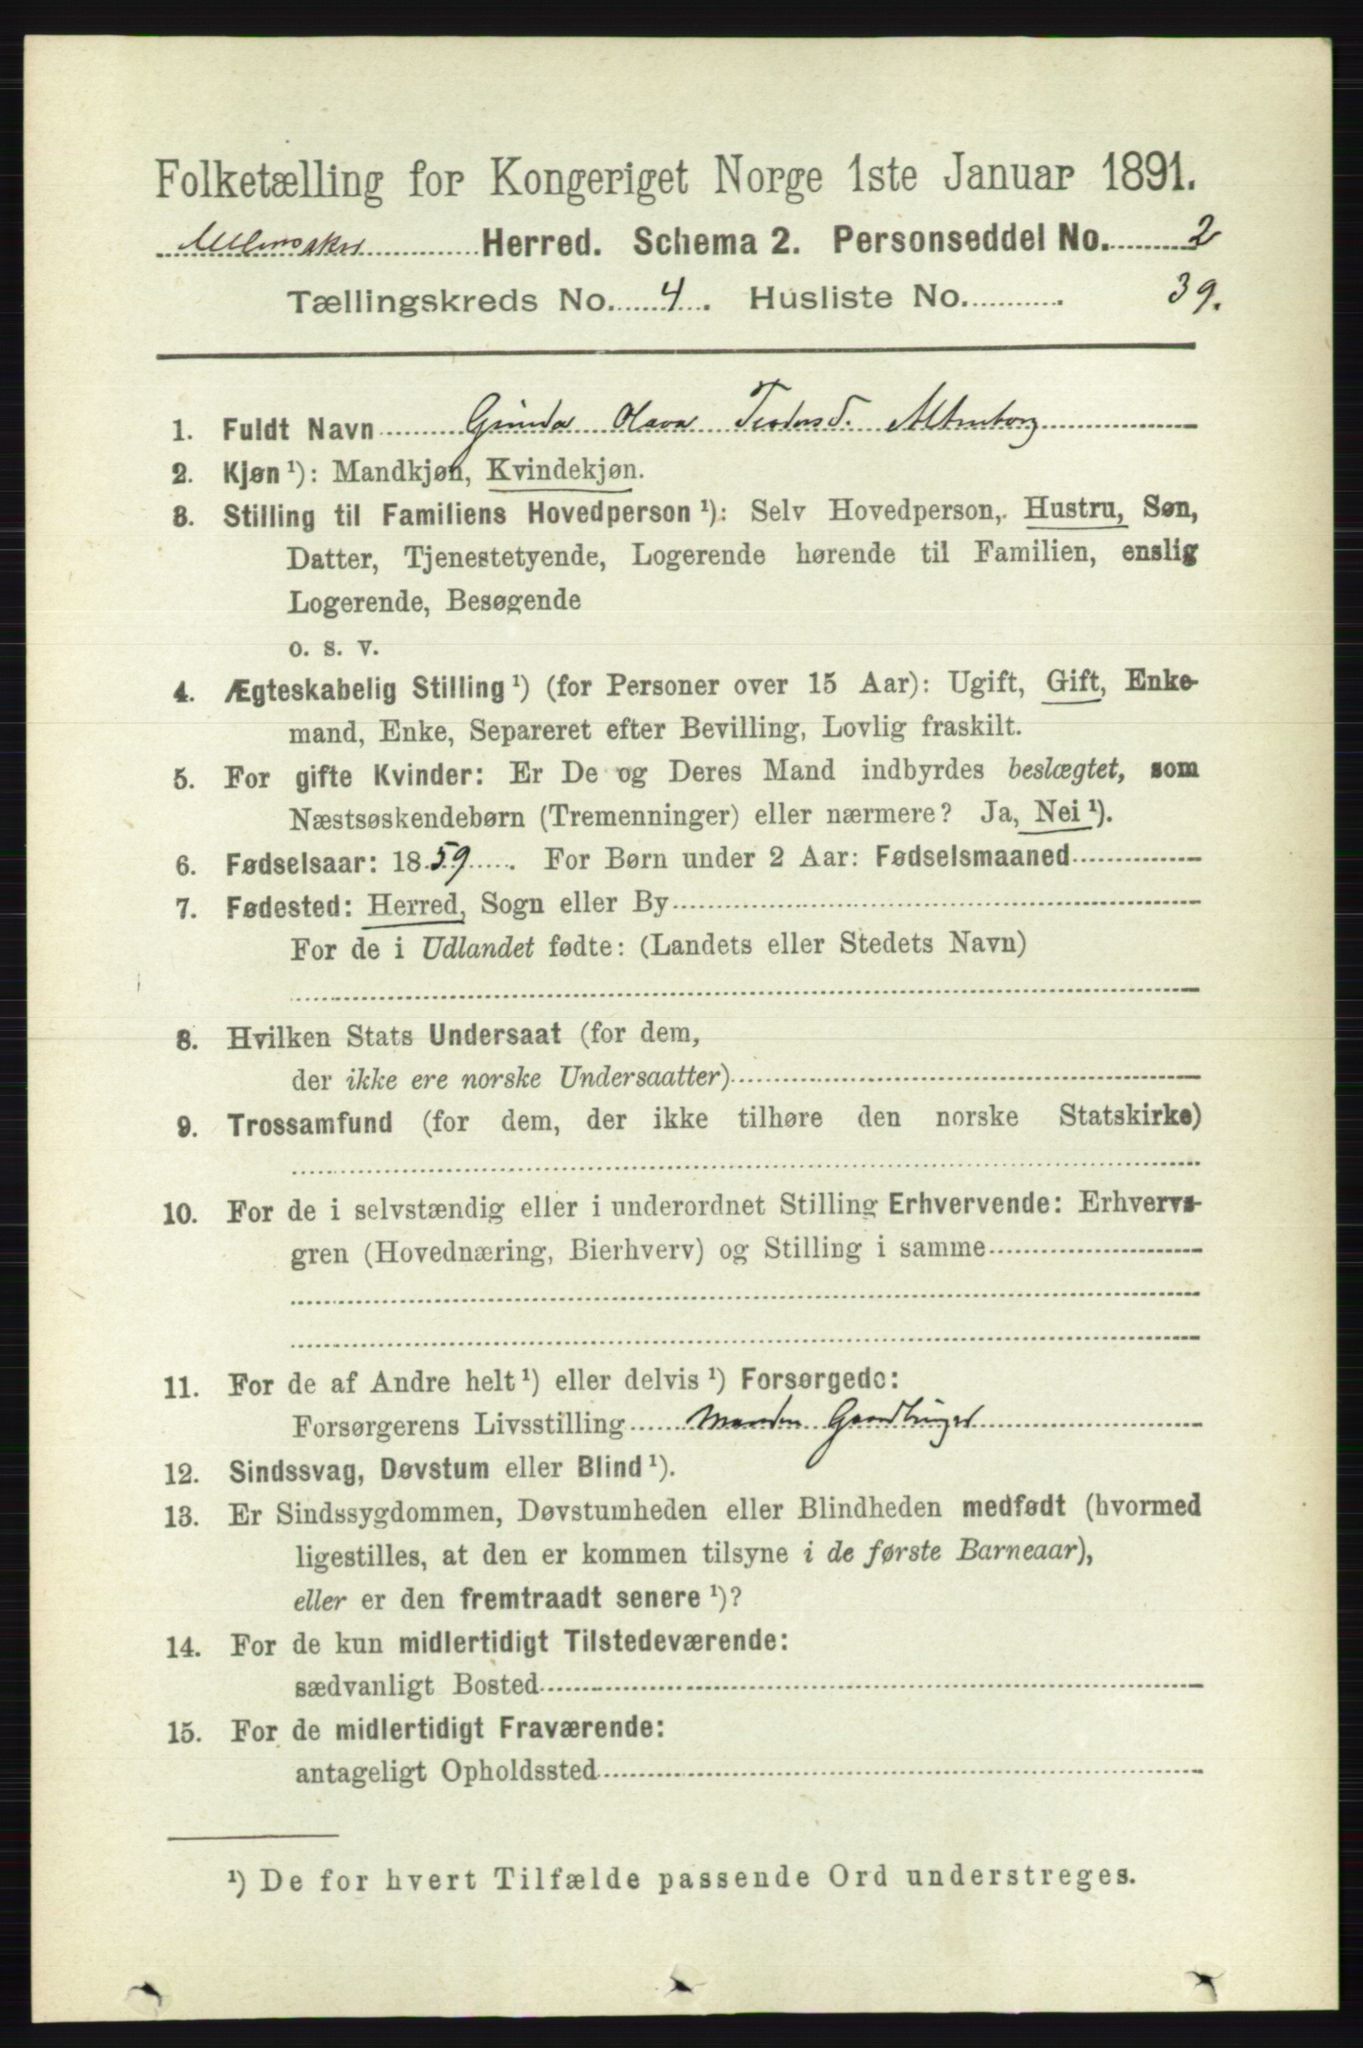 Folketælling for Kongeriget Norge 1ste Januar 1891.
Ullensaker Herred. Schema 2. Personseddel No. 2
Tællingskreds No. 4. Husliste No. 39.
1. Fuldt Navn Olava
2. Kjøn ¹): Mandkjøn, Kvindekjøn.
3. Stilling til Familiens Hovedperson ¹): Selv Hovedperson, Hustru, Søn,
Datter, Tjenestetyende, Logerende hørende til Familien, enslig
Logerende, Besøgende
o. s. v.
4. Ægteskabelig Stilling ¹) (for Personer over 15 Aar): Ugift, Gift, Enke-
mand, Enke, Separeret efter Bevilling, Lovlig fraskilt.
5. For gifte Kvinder: Er De og Deres Mand indbyrdes beslægtet, som
Næstsøskendebørn (Tremenninger) eller nærmere? Ja, Nei ¹).
6. Fødselsaar: 1859. For Børn under 2 Aar: Fødselsmaaned
7. Fødested: Herred, Sogn eller By
For de i Udlandet fødte: (Landets eller Stedets Navn)
8. Hvilken Stats Undersaat (for dem,
der ikke ere norske Undersaatter)
9. Trossamfund (for dem, der ikke tilhøre den norske Statskirke)
10. For de i selvstændig eller i underordnet Stilling Erhvervende: Erhvervs-
gren (Hovednæring, Bierhverv) og Stilling i samme
11. For de af Andre helt ¹) eller delvis ¹) Forsørgede:
Forsørgerens Livsstilling Manden
12. Sindssvag, Døvstum eller Blind ¹).
13. Er Sindssygdommen, Døvstumheden eller Blindheden medfødt (hvormed
ligestilles, at den er kommen tilsyne i de første Barneaar),
eller er den fremtraadt senere ¹)?
14. For de kun midlertidigt Tilstedeværende:
sædvanligt Bosted
15. For de midlertidigt Fraværende:
antageligt Opholdssted
¹) De for hvert Tilfælde passende Ord understreges.